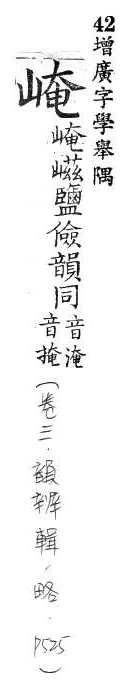 42增廣字學舉隅
崦
崦嵫鹽儉韻同
音淹
音掩
(卷三.韻辨輯,略.P525)